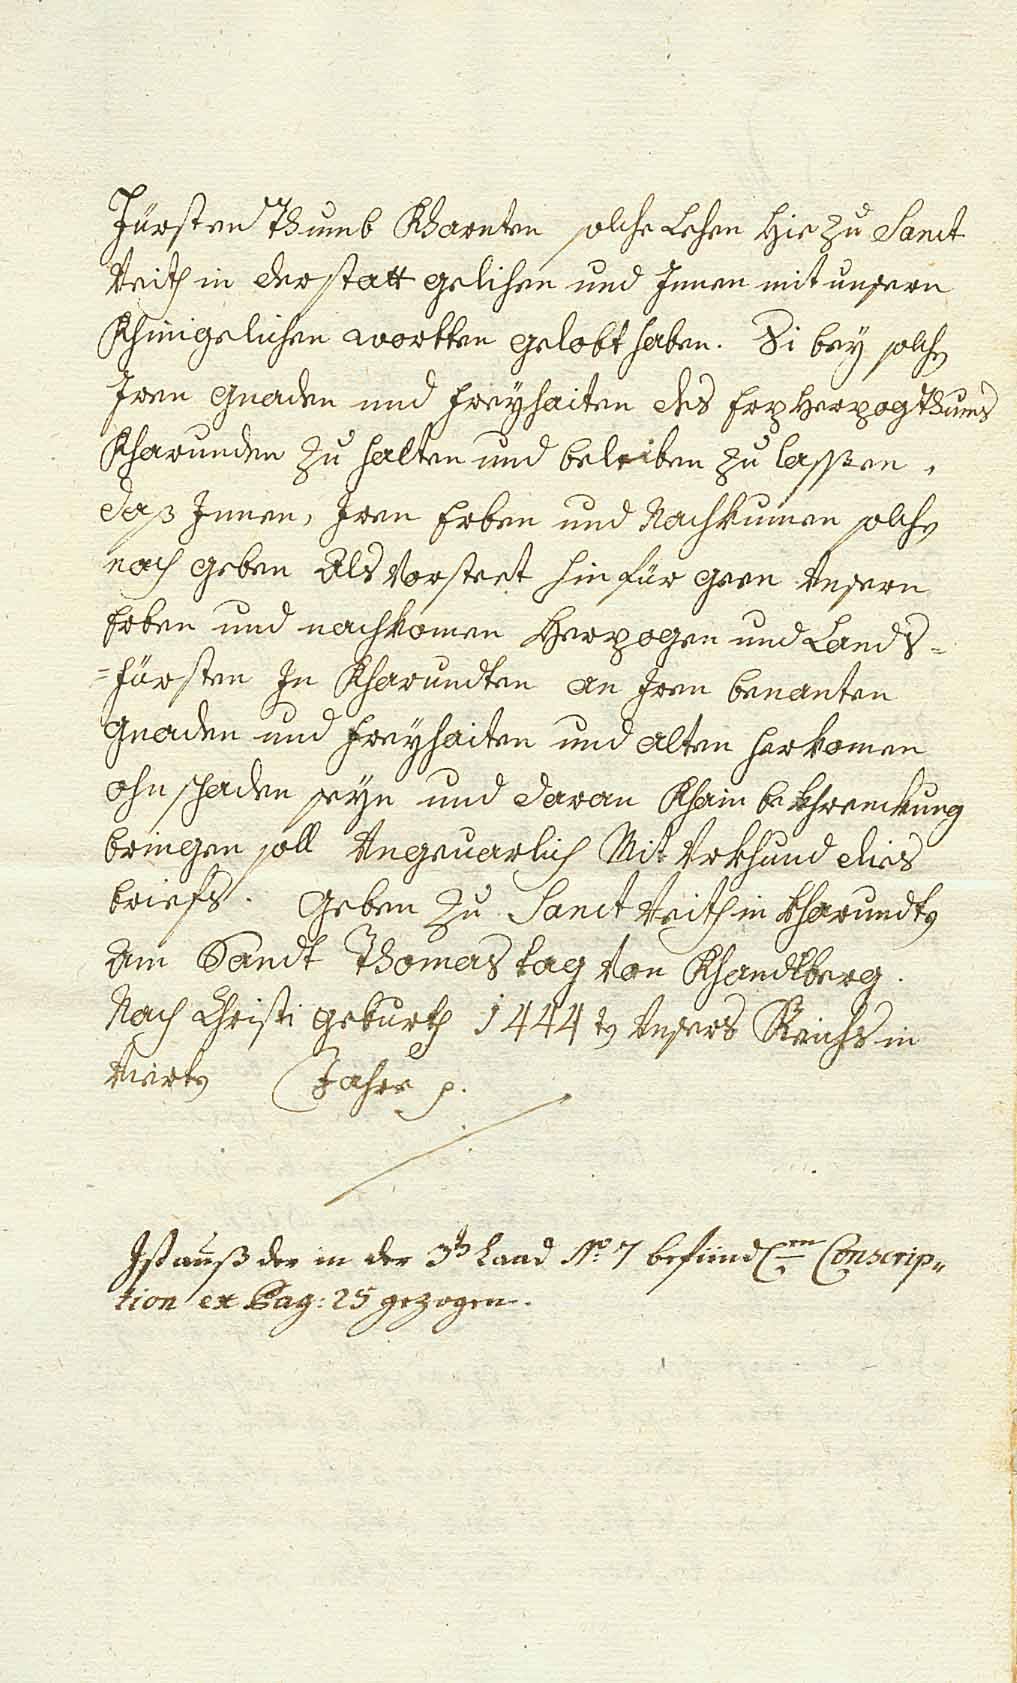 Fürsten Thumb Kharnten solche Lehen hie zu Sanct
Veith in der statt gelihen und Innen mit unsern
Khinigelichen wortten gelobt haben. Si bey solchen
Iren gnaden und freyhaiten des ErzHerzogthums
Kharnnden zu halten und beleiben zu lassen,
daß Innen, Iren Erben und Nachkumen solches
nach geben Als Vorsteet hinfür geen Unsern
Erben und nachkomen Herzogen und Lands-
=fürsten In Kharnndten an Iren benanten
gnaden und freyhaiten und alten herkomen
ohn schaden seyn und daran Khain bekhrenckung
bringen soll Ungeuarlich Mit Urkhund dies
briefs. Geben zu Sanct Veith in Kharnndten
Am Sandt Thomas tag Von Khandlberg.
Nach Christi geburth 1444ten Unsers Reichs in
Vierten Jahre p.
Ist auß der in der 3ten Laad No. 7 befündlichen Conscrip„
tion ex Pag: 25 gezogen.